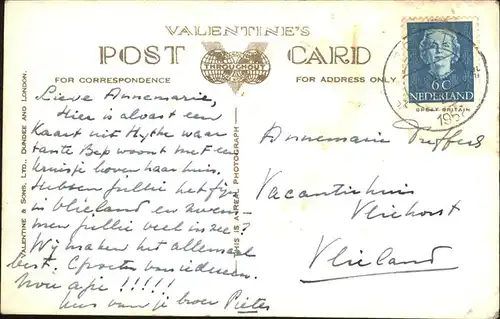 VALENTINE'S
POST CARD
THROUGHOUT
FOR CORRESPONDENCE
FOR ADDRESS ONLY
GREAT BRITAIN
6 C
NEDERLAND
195
VALENTINE & SONS, LTD., DUNDEE AND LONDON.
THIS IS A REAL PHOTOGRAPH
Lieve Annemarie,
Hier is alvast een
Kaart uit Hythe waar
tante Bep woont met een
kruisje boven haar huis.
Hebben jullie het fijn
in Vlieland en zwem-
men jullie veel in zee?
Wij maken het allemaal
best. Groeten van iedereen.
Nou ajie !!!!!
kus van je broer Pieter
Annemarie
Vacantiehuis
Vliehorst
Vlieland